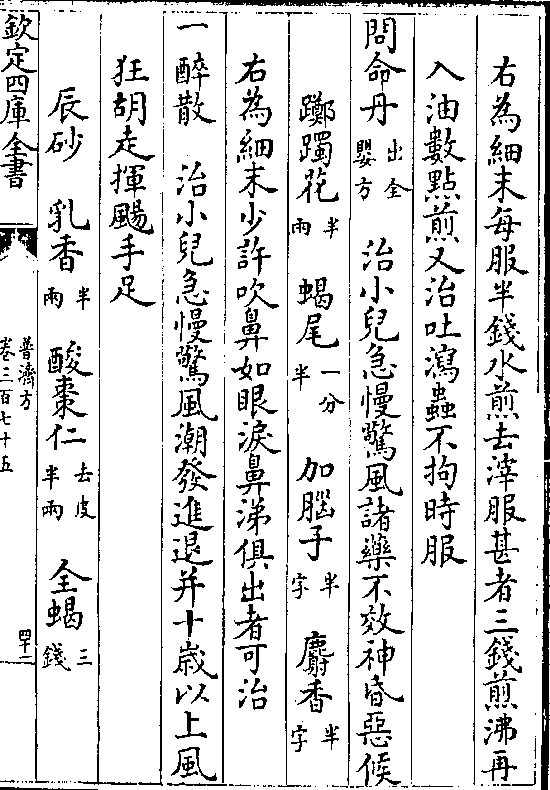 右為細末每服半錢水煎去滓服甚者三錢煎沸再
入油數點煎又治吐瀉蟲不拘時服
問命丹出全嬰方　治小兒急慢驚風諸藥不效神昏惡候
躑躅花半兩　蝎尾一分半　加腦子半字　麝香半字
右為細末少許吹鼻如眼淚鼻涕俱出者可治
一醉散　治小兒急慢驚風潮發進退并十歲以上風
狂胡走揮颺手足
辰砂　乳香半兩　酸棗仁去皮半兩　全蝎三錢
欽定四庫全書
普濟方
卷三百七十五
四十二